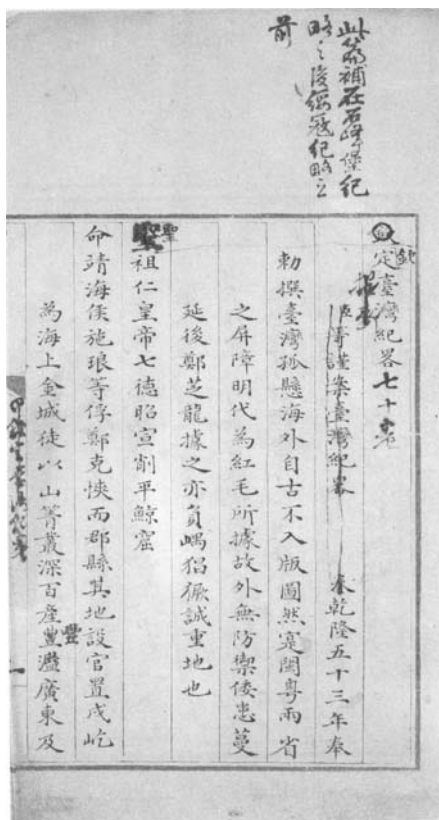 此篇補在石峰堡紀
略之後綏寇紀略之
前
欽定臺灣紀畧七十卷
臣等謹案臺灣紀畧 奉乾隆五十三年奉
勅撰臺灣孤懸海外自古不入版圖然寔閩粤兩省
之屏障明代為紅毛所據故外無防禦倭患蔓
延後鄭芝龍據之亦負嵎猖獗誠重地也
聖
聖祖仁皇帝七德昭宣削平鯨窟
命靖海侯施琅等俘鄭克塽而郡縣其地設官置戍屹
為海上金城徒以山菁叢深百產豐溢廣東及
豐
一